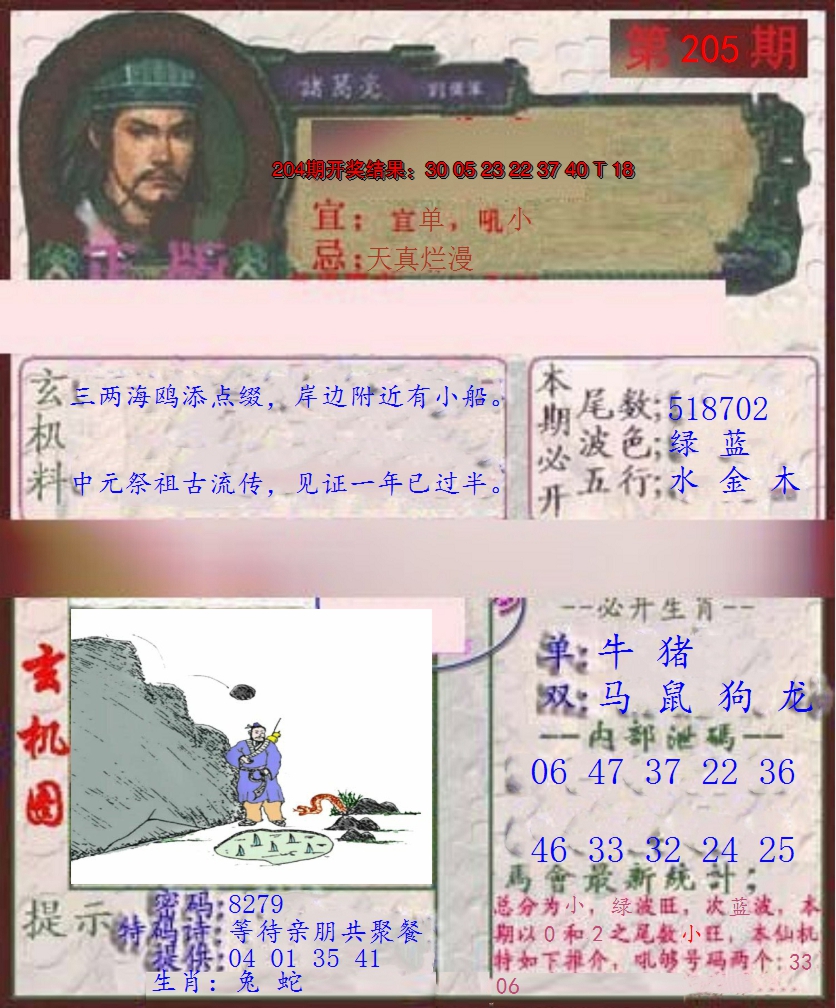 第 205 期
諸葛亮
204期开奖结果：30 05 23 22 37 40 T 18
宜：宜单，吼小
忌：天真烂漫
正版
玄机料
三两海鸥添点缀，岸边附近有小船。
中元祭祖古流传，见证一年已过半。
本期必开
尾数;518702
波色;绿 蓝
五行;水 金 木
玄机图
--必开生肖--
单:牛 猪
双:马 鼠 狗 龙
—内部泄碼—
06 47 37 22 36
46 33 32 24 25
馬會最新統計;
总分为小，绿波旺，次蓝波，本
期以0和2之尾数小旺，本仙机
特如下推介，吼够号码两个:33
06
提示
密码:8279
特码诗:等待亲朋共聚餐
提供:04 01 35 41
生肖: 兔 蛇